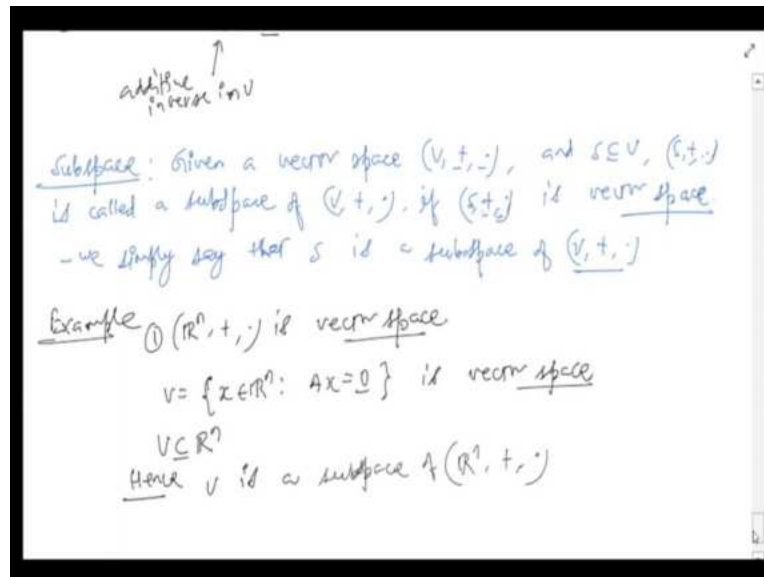 additive
inverse in V
Subspace: Given a vector space (V, +, ·), and S ⊆ V, (S, +, ·)
is called a subspace of (V, +, ·), if (S, +, ·) is vector space
- we simply say that S is a subspace of (V, +, ·)
Example ① (ℝⁿ, +, ·) is vector space
V = {x ∈ ℝⁿ : Ax = 0} is vector space
V ⊆ ℝⁿ
Hence V is a subspace of (ℝⁿ, +, ·)